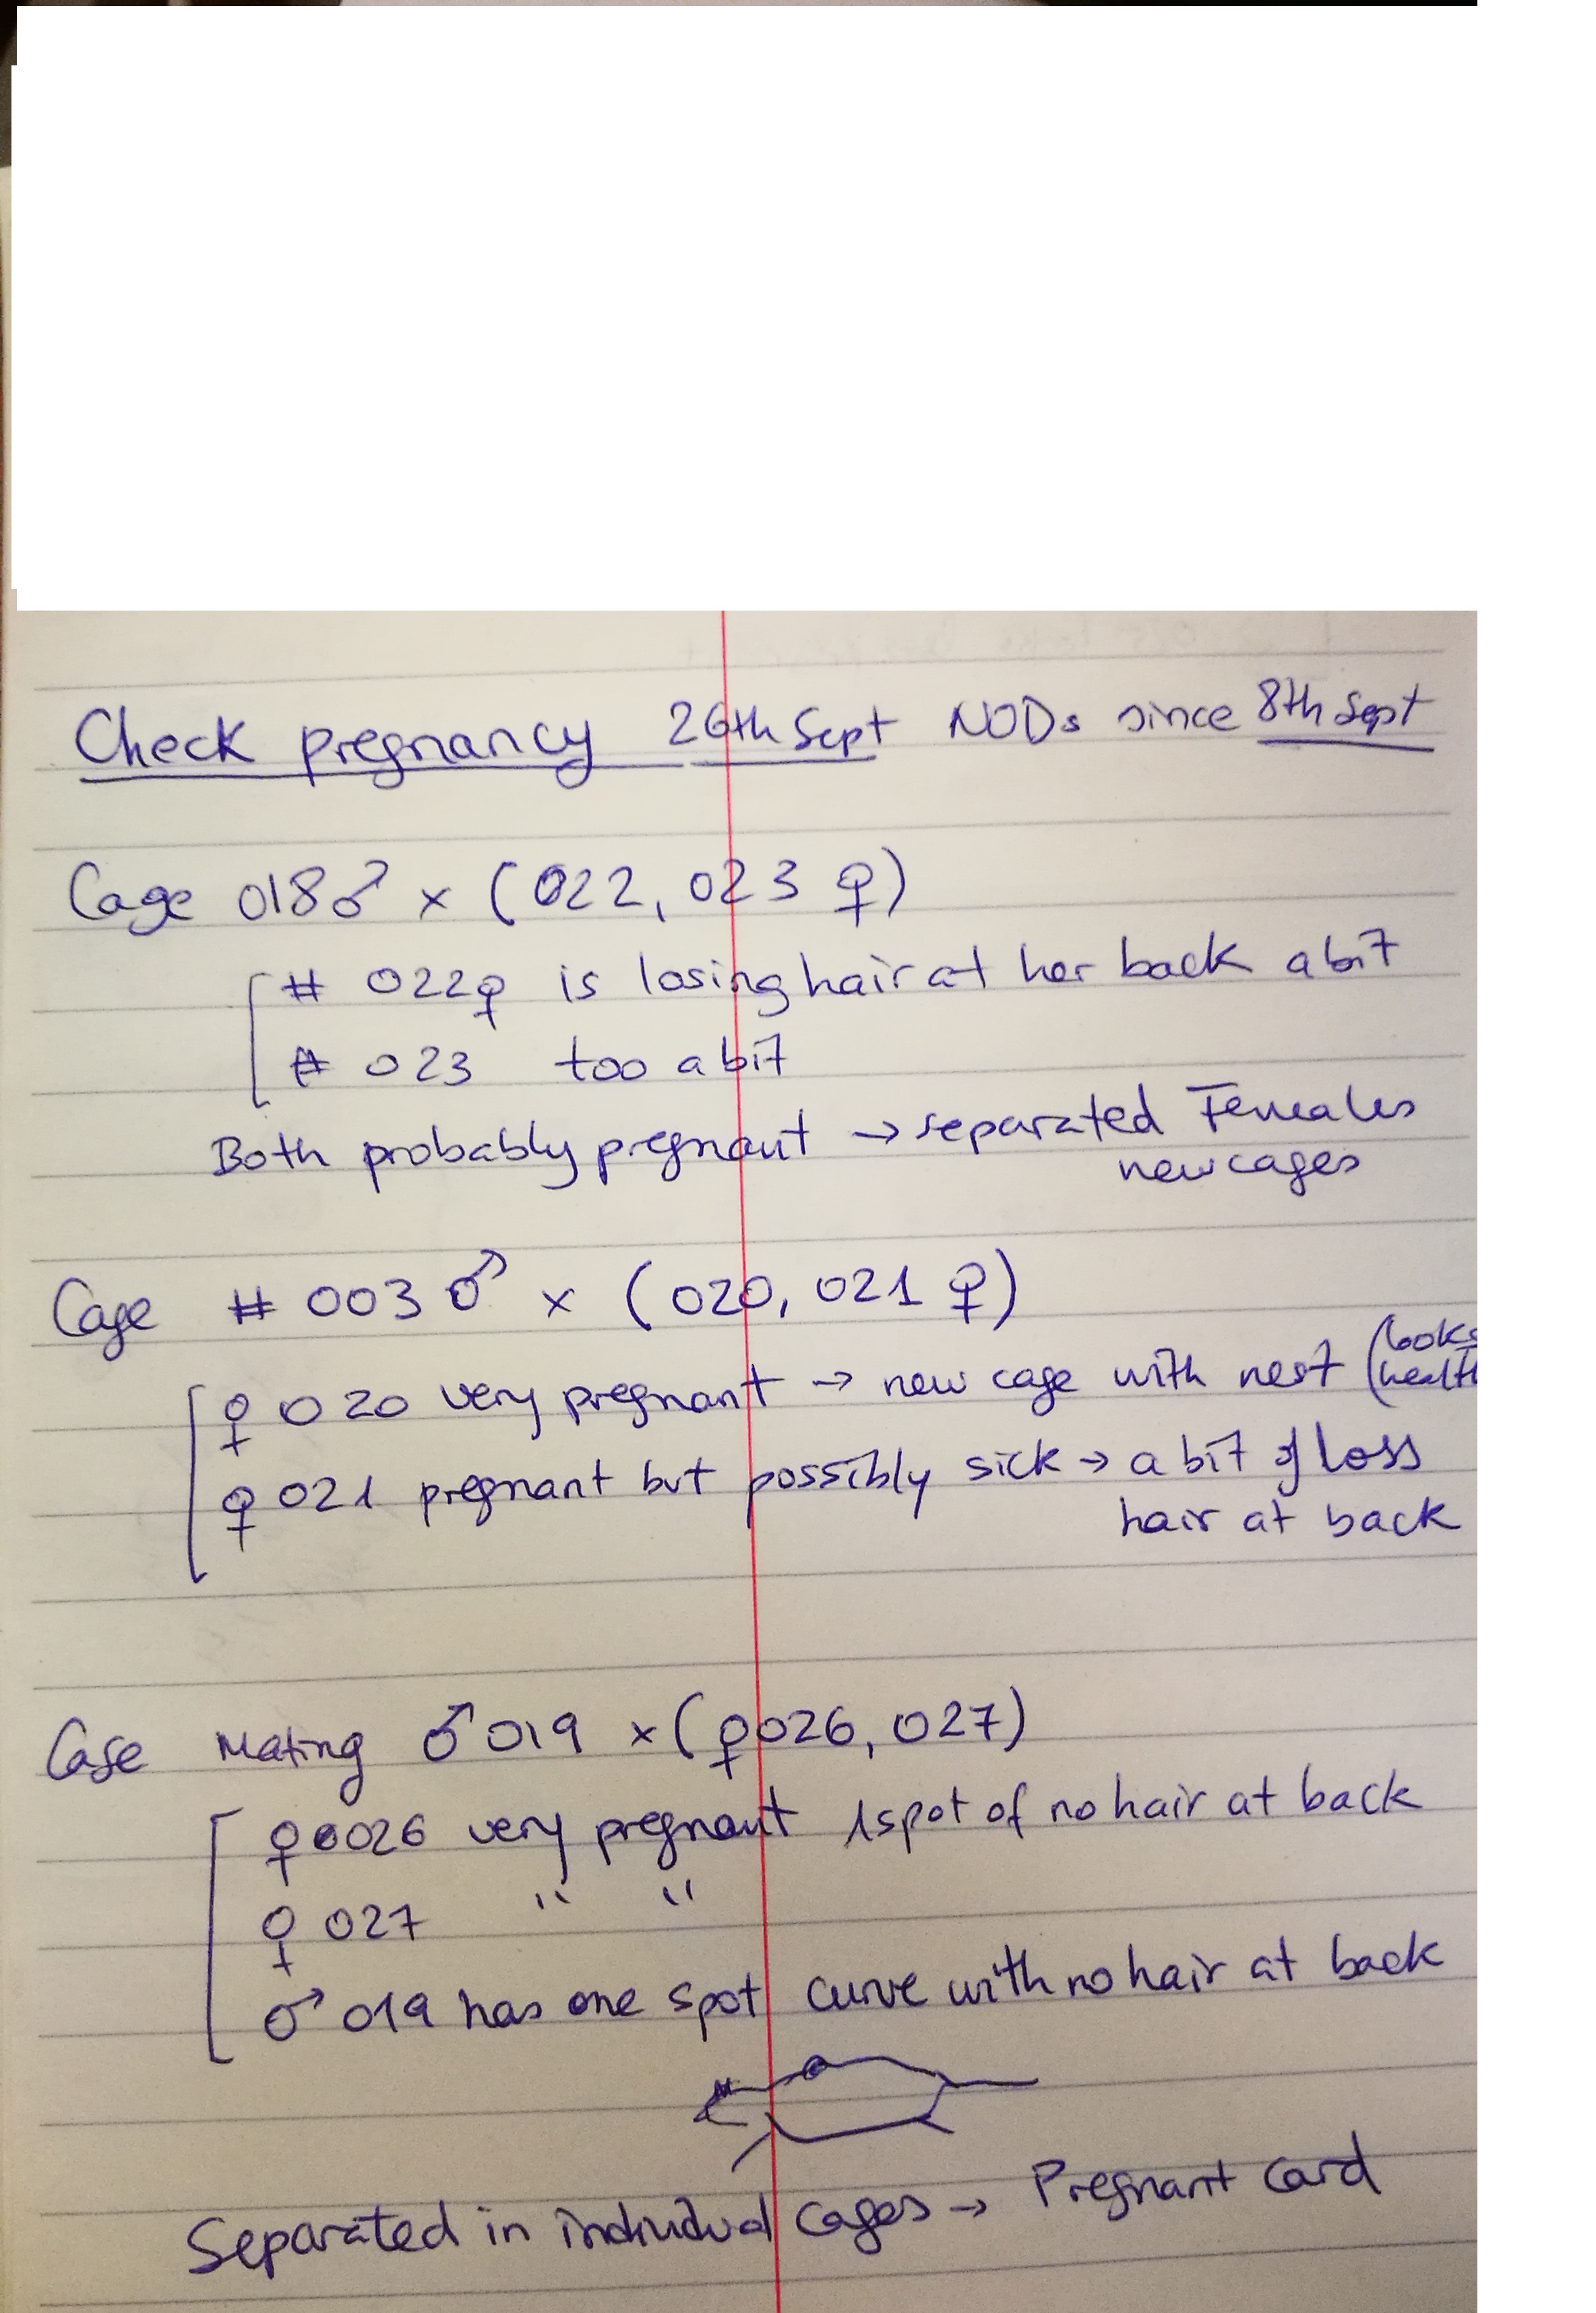 Check pregnancy 26th Sept NODs since 8th Sept
Cage 018♂ x (022, 023 ♀)
# 022♀ is losing hair at her back a bit
# 023 too a bit
Both probably pregnant → separated Females
new cages
Cage # 003 ♂ x (020, 021 ♀)
(looks
♀ 020 very pregnant → new cage with nest (health
♀ 021 pregnant but possibly sick → a bit of loss
hair at back
Cage Mating ♂ 019 x (♀026, 027)
♀ 026 very pregnant 1 spot of no hair at back
♀ 027 " "
♂ 019 has one spot curve with no hair at back
Separated in individual cages → Pregnant card